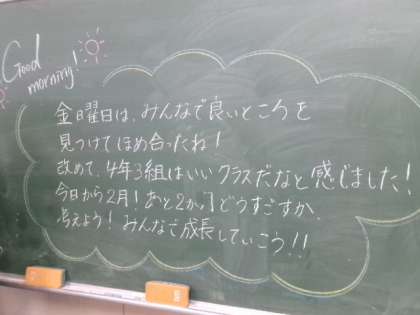 Good
morning!
金曜日は、みんなで良いところを
見つけてほめ合ったね！
改めて、4年3組はいいクラスだなと感じました！
今日から2月！あと2か月どうすごすか、
考えよう！みんなで成長していこう！！